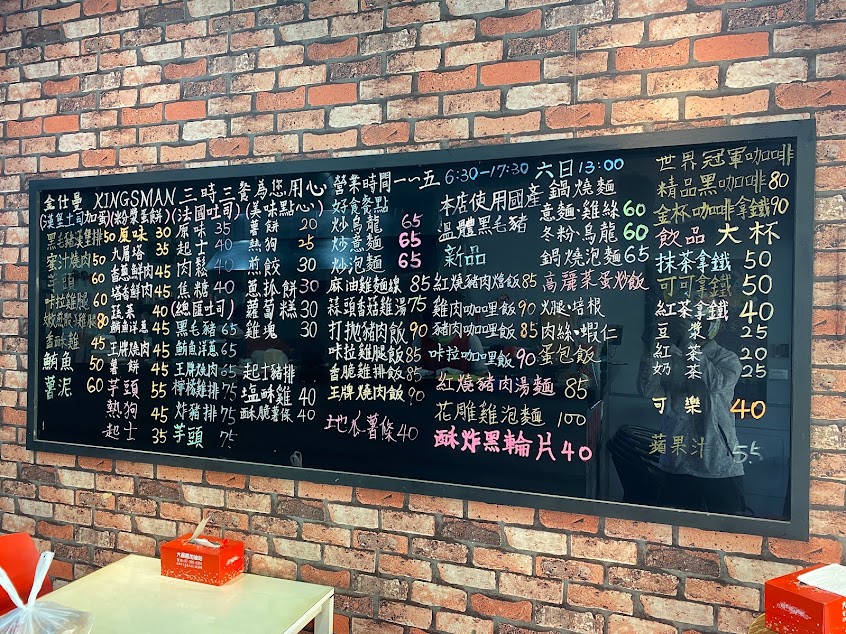 金仕曼 KINGSMAN 三時三餐為您用心 營業時間 一~五 6:30-17:30 六日 13:00
(漢堡土司加蛋)
黑毛豬漢堡排 50
蜜汁燒肉 50
芋頭 60
咔拉雞腿 60
80
雞 45
鮪魚 50
薯泥 60
(粉漿蛋餅)
原味 30
九層塔 35
香蔥鮮肉 45
塔香鮮肉 45
蔬菜 40
鮪魚洋蔥 45
王牌燒肉 45
薯餅 45
芋頭 55
熱狗 45
起士 35
(法國吐司)
原味 35
起士 40
肉鬆 40
焦糖 40
(總匯吐司)
黑毛豬 65
鮪魚洋蔥 65
王牌燒肉 75
檸檬雞肉 75
炸豬排 75
芋頭 75
(美味點心)
薯餅 20
熱狗 25
煎餃 30
蔥抓餅 30
蘿蔔糕 30
雞塊 30
起士豬排
塩酥雞 40
酥脆薯條 40
好食餐點
炒烏龍 65
炒意麵 65
炒泡麵 65
麻油雞麵線 85
蒜頭香菇雞湯 75
打拋豬肉飯 90
咔拉雞腿飯 85
香脆雞排飯 85
王牌燒肉飯 90
地瓜薯條 40
本店使用國產
溫體黑毛豬
新品
紅燒豬肉燴飯 85
雞肉咖哩飯 85
豬肉咖哩飯 85
咔拉咖哩飯 90
紅燒豬肉湯麵 85
花雕雞泡麵 100
酥炸黑輪片 40
鍋燒麵
意麵·雞絲 60
冬粉·烏龍 60
鍋燒泡麵 65
高麗菜蛋炒飯
火腿·培根
肉絲·蝦仁
蛋包飯
世界冠軍咖啡
精品黑咖啡 80
金杯咖啡拿鐵 90
飲品 大杯
抹茶拿鐵 50
可可拿鐵 50
紅茶拿鐵 40
豆漿 25
紅茶 20
奶茶 25
可樂 40
蘋果汁 55